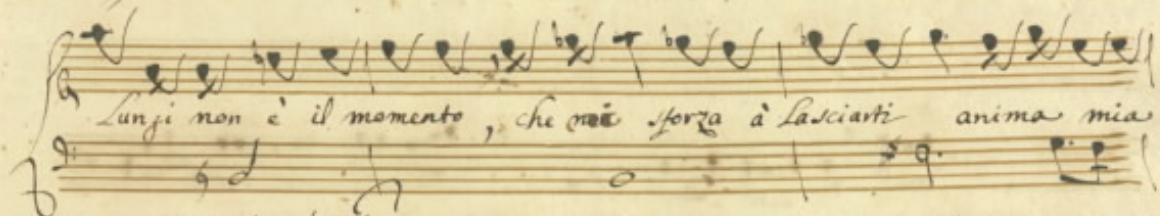 Lungi non è il momento, che sforza à Lasciarti anima mia